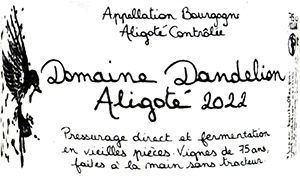 Appellation Bourgogne
Aligoté Contrôlée
Domaine Dandelion
Aligoté 2022
Pressurage direct et fermentation
en vieilles pièces. Vignes de 75 ans,
faites à la main sans tracteur.